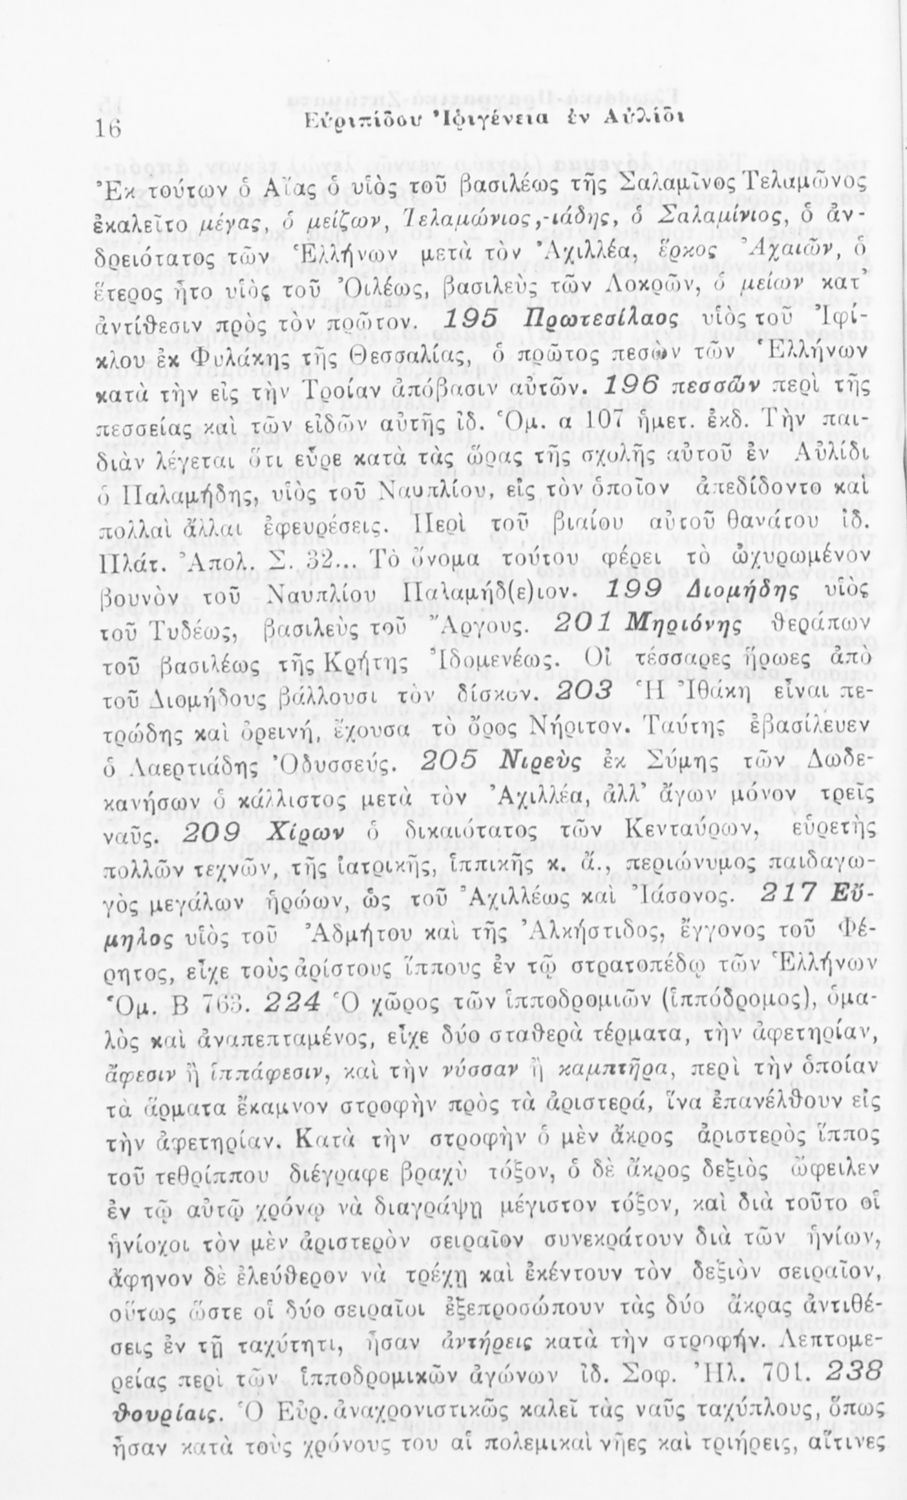 16
Εὐριπίδου Ἰφιγένεια ἐν Αὐλίδι
Ἐκ τούτων ὁ Αἴας ὁ υἱὸς τοῦ βασιλέως τῆς Σαλαμῖνος Τελαμῶνος
ἐκαλεῖτο μέγας, ὁ μείζων, Τελαμώνιος,-ιάδης, ὁ Σαλαμίνιος, ὁ ἀν-
δρειότατος τῶν Ἑλλήνων μετὰ τὸν Ἀχιλλέα, ἕρκος Ἀχαιῶν, ὁ
ἕτερος ἦτο υἱὸς τοῦ Ὀιλέως, βασιλεὺς τῶν Λοκρῶν, ὁ μείων κατ'
ἀντίθεσιν πρὸς τὸν πρῶτον. 195 Πρωτεσίλαος υἱὸς τοῦ Ἰφί-
κλου ἐκ Φυλάκης τῆς Θεσσαλίας, ὁ πρῶτος πεσὼν τῶν Ἑλλήνων
κατὰ τὴν εἰς τὴν Τροίαν ἀπόβασιν αὐτῶν. 196 πεσσῶν περὶ τῆς
πεσσείας καὶ τῶν εἰδῶν αὐτῆς ἰδ. Ὁμ. α 107 ἡμετ. ἐκδ. Τὴν παι-
διὰν λέγεται ὅτι εὗρε κατὰ τὰς ὥρας τῆς σχολῆς αὐτοῦ ἐν Αὐλίδι
ὁ Παλαμήδης, υἱὸς τοῦ Ναυπλίου, εἰς τὸν ὁποῖον ἀπεδίδοντο καὶ
πολλαὶ ἄλλαι ἐφευρέσεις. Περὶ τοῦ βιαίου αὐτοῦ θανάτου ἰδ.
Πλάτ. Ἀπολ. Σ. 32... Τὸ ὄνομα τούτου φέρει τὸ ὠχυρωμένον
βουνὸν τοῦ Ναυπλίου Παλαμήδ(ε)ιον. 199 Διομήδης υἱὸς
τοῦ Τυδέως, βασιλεὺς τοῦ Ἄργους. 201 Μηριόνης θεράπων
τοῦ βασιλέως τῆς Κρήτης Ἰδομενέως. Οἱ τέσσαρες ἥρωες ἀπὸ
τοῦ Διομήδους βάλλουσι τὸν δίσκον. 203 Ἡ Ἰθάκη εἶναι πε-
τρώδης καὶ ὀρεινή, ἔχουσα τὸ ὄρος Νήριτον. Ταύτης ἐβασίλευεν
ὁ Λαερτιάδης Ὀδυσσεύς. 205 Νιρεὺς ἐκ Σύμης τῶν Δωδε-
κανήσων ὁ κάλλιστος μετὰ τὸν Ἀχιλλέα, ἀλλ' ἄγων μόνον τρεῖς
ναῦς. 209 Χίρων ὁ δικαιότατος τῶν Κενταύρων, εὑρετὴς
πολλῶν τεχνῶν, τῆς ἰατρικῆς, ἱππικῆς κ. ἄ., περιώνυμος παιδαγω-
γὸς μεγάλων ἡρώων, ὡς τοῦ Ἀχιλλέως καὶ Ἰάσονος. 217 Εὔ-
μηλος υἱὸς τοῦ Ἀδμήτου καὶ τῆς Ἀλκήστιδος, ἔγγονος τοῦ Φέ-
ρητος, εἶχε τοὺς ἀρίστους ἵππους ἐν τῷ στρατοπέδῳ τῶν Ἑλλήνων
Ὁμ. Β 763. 224 Ὁ χῶρος τῶν ἱπποδρομιῶν (ἱππόδρομος), ὁμα-
λὸς καὶ ἀναπεπταμένος, εἶχε δύο σταθερὰ τέρματα, τὴν ἀφετηρίαν,
ἄφεσιν ἢ ἱππάφεσιν, καὶ τὴν νύσσαν ἢ καμπτῆρα, περὶ τὴν ὁποίαν
τὰ ἅρματα ἔκαμνον στροφὴν πρὸς τὰ ἀριστερά, ἵνα ἐπανέλθουν εἰς
τὴν ἀφετηρίαν. Κατὰ τὴν στροφὴν ὁ μὲν ἄκρος ἀριστερὸς ἵππος
τοῦ τεθρίππου διέγραφε βραχὺ τόξον, ὁ δὲ ἄκρος δεξιὸς ὤφειλεν
ἐν τῷ αὐτῷ χρόνῳ νὰ διαγράψῃ μέγιστον τόξον, καὶ διὰ τοῦτο οἱ
ἡνίοχοι τὸν μὲν ἀριστερὸν σειραῖον συνεκράτουν διὰ τῶν ἡνίων,
ἄφηνον δὲ ἐλεύθερον νὰ τρέχῃ καὶ ἐκέντουν τὸν δεξιὸν σειραῖον,
οὕτως ὥστε οἱ δύο σειραῖοι ἐξεπροσώπουν τὰς δύο ἄκρας ἀντιθέ-
σεις ἐν τῇ ταχύτητι, ἦσαν ἀντήρεις κατὰ τὴν στροφήν. Λεπτομε-
ρείας περὶ τῶν ἱπποδρομικῶν ἀγώνων ἰδ. Σοφ. Ἠλ. 701. 238
θουρίαις. Ὁ Εὐρ. ἀναχρονιστικῶς καλεῖ τὰς ναῦς ταχύπλους, ὅπως
ἦσαν κατὰ τοὺς χρόνους του αἱ πολεμικαὶ νῆες καὶ τριήρεις, αἵτινες